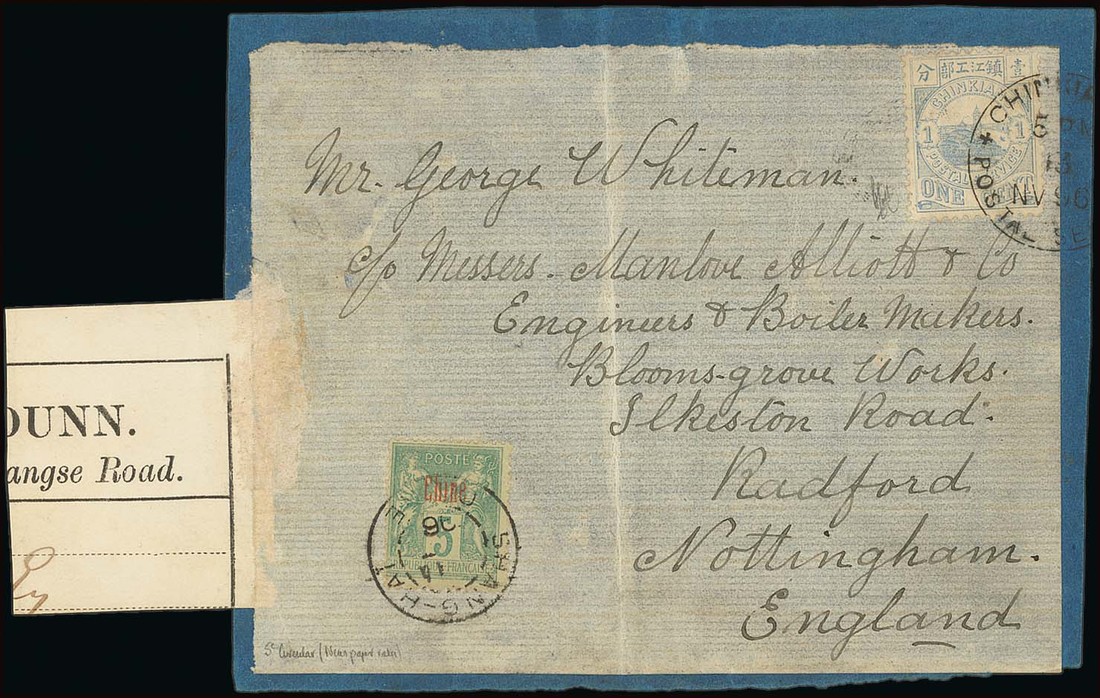 壹 鎮江工部 分
CHINKIANG
1 1
POSTAL SERVICE
ONE CENT
CHINKIA
5 PM
NV 96
POSTAL SE
Mr. George Whiteman.
c/o Messers. Manlove Alliott & Co
Engineers & Boiler Makers.
Blooms-grove Works.
Ilkeston Road.
Radford
Nottingham.
England
DUNN.
angse Road.
POSTE
Chine
5
REPUBLIQUE FRANCAISE
SHANG-HAI
96
5c Circular (Newspaper rate)